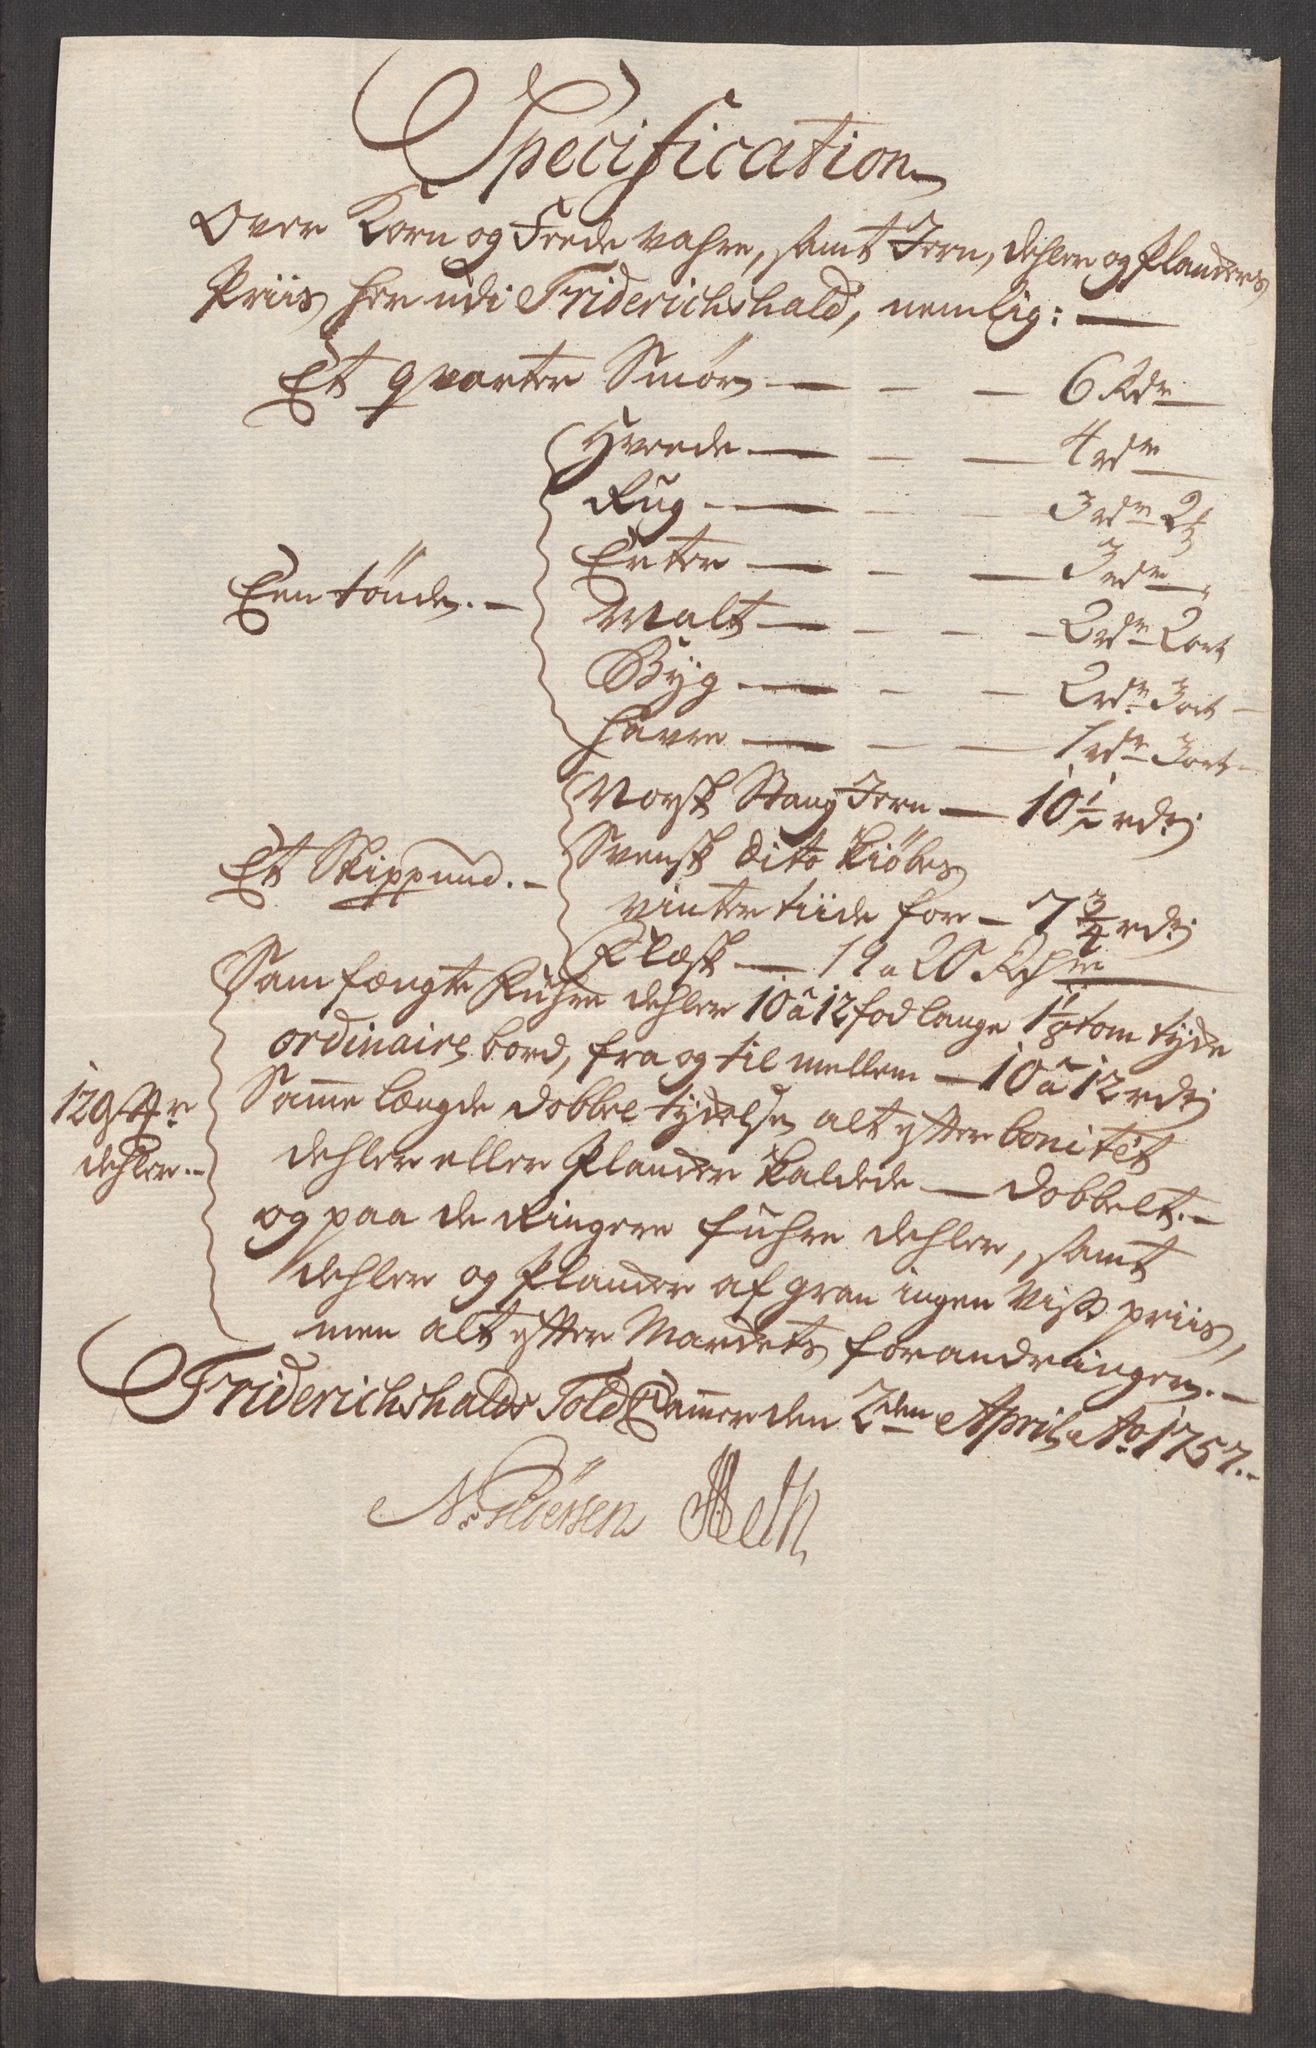 Specification
Over Korn og Feede vahre, samt Jern, dehler og Planckers
Priis her udi Friderichshald, nemlig:
Et qvarter Smør — 6 Rdr
Hvede — 4 rdr
Rug — 3 rdr 2
Erter — 3 rdr
Een tönde. — Malt — 2 rdr 2 ort
Byg — 2 rdr 3 ort
Havre — 1 rdr 3 ort
Norsk Stang Jern — 10 1/2 rdr
Et Skippund. — Svensk dito kiöbes
vinter tiide for — 7 3/4 rdr
Flæsk — 19 a 20 Rdr
Sam fængte Fuhre dehler 10 a 12 fod lange 1 1/8 tom tyde
ordinaire bord, fra og til mellem — 10 a 12 rdr
129 St:r Samme længde dobbel tydelse alt efter bonitët
dehler. — dehler eller Plancker kaldede — dobbelt. —
og paa de Ringere fuhre dehler, samt
dehler og Plancker af gran ingen viss priis,
men alt efter Marckets forandringer. —
Friderichshalds Told Cammer den 2den April Ao 1757. —